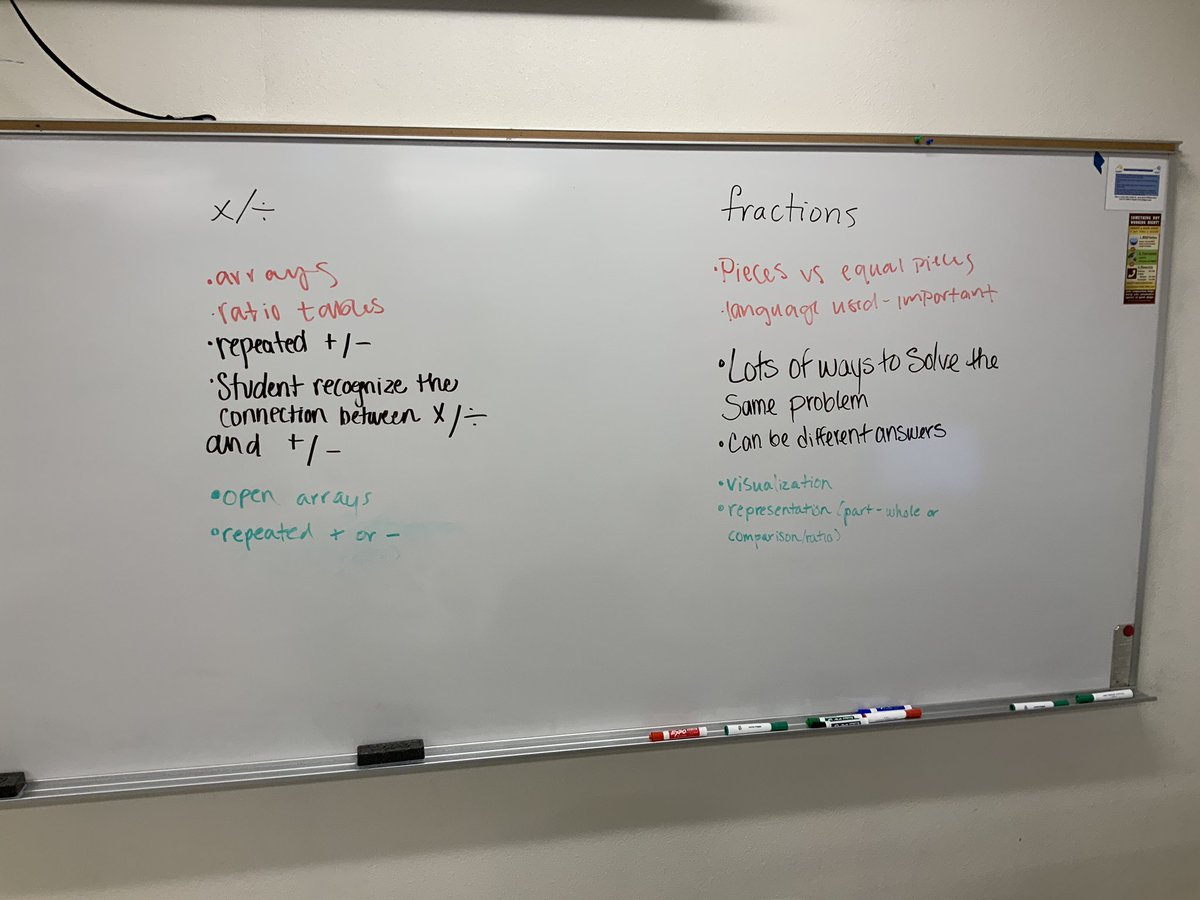 x/÷
• arrays
• ratio tables
• repeated +/-
• Student recognize the
connection between x/÷
and +/-
• open arrays
• repeated + or -
fractions
• Pieces vs equal pieces
• language used - important
• Lots of ways to Solve the
Same problem
• Can be different answers
• visualization
• representation (part-whole or
comparison/ratio)
SOMETHING NOT
WORKING RIGHT?
EXPO